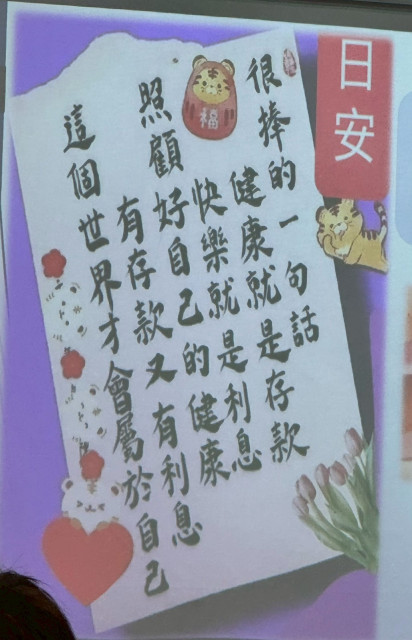 日安
很棒的一句話
健康就是存款
快樂就是利息
照顧好自己的健康
有存款又有利息
這個世界才會屬於自己
福